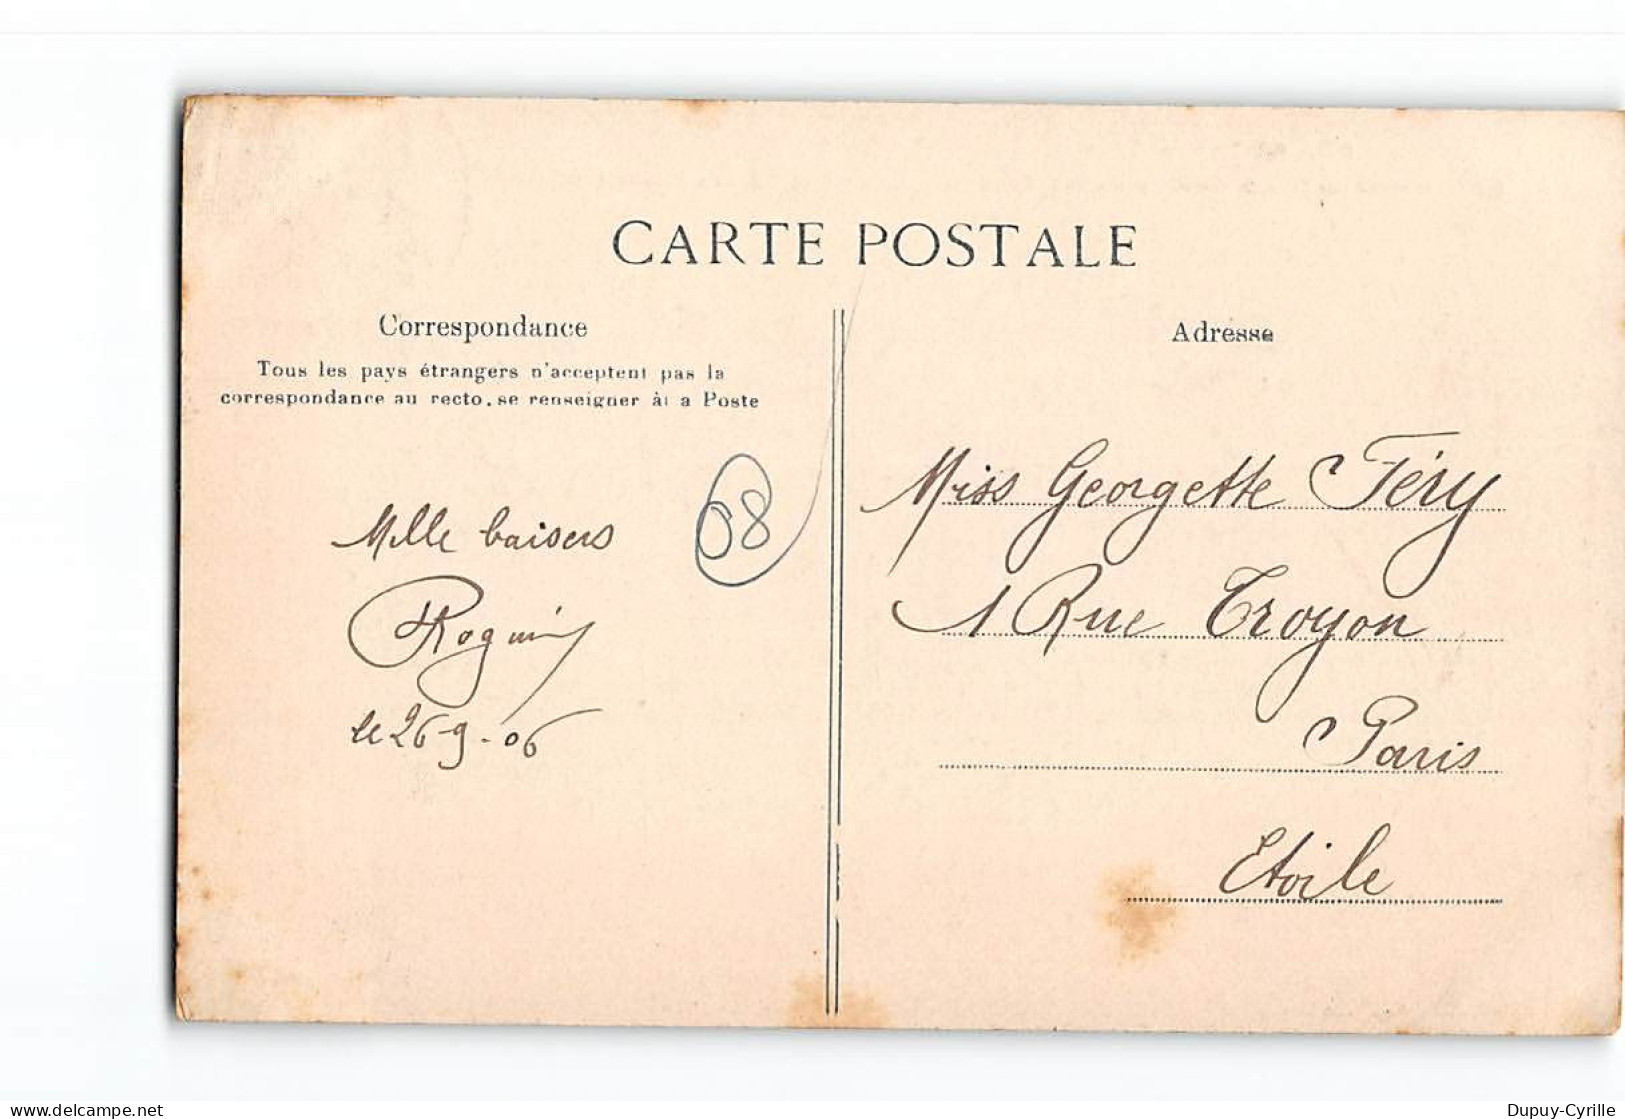 CARTE POSTALE
Correspondance
Tous les pays étrangers n'acceptent pas la
correspondance au recto, se renseigner àl a Poste
Mille baisers
le 26-9-06
08
Adresse
Miss Georgette Féry
1 Rue Troyon
Paris
Etoile
www.delcampe.net
Dupuy-Cyrille